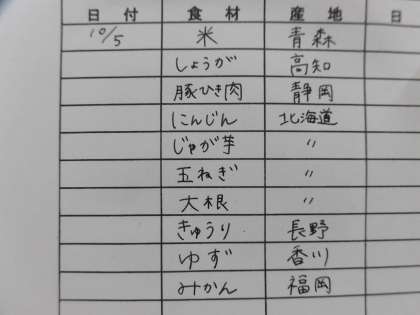 日付 食材 産地 日
10/5 米 青森
しょうが 高知
豚ひき肉 静岡
にんじん 北海道
じゃが芋 〃
玉ねぎ 〃
大根 〃
きゅうり 長野
ゆず 香川
みかん 福岡